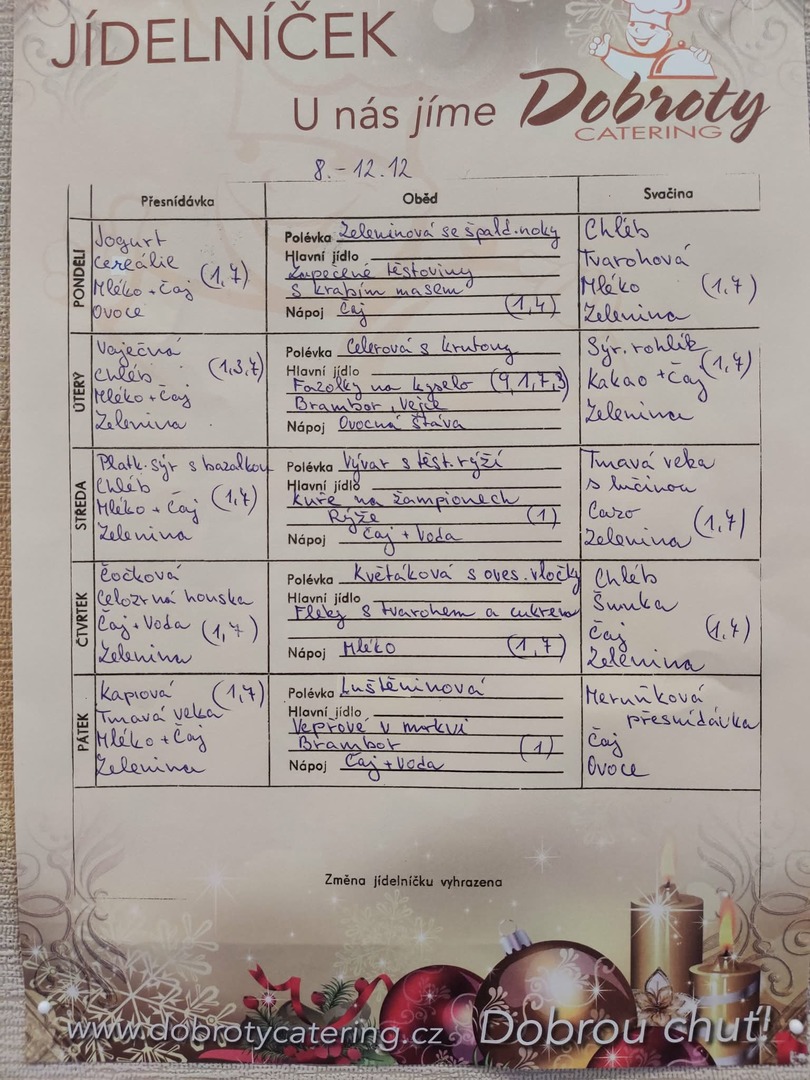 JÍDELNÍČEK
U nás jíme Dobroty
CATERING
8.-12.12
Přesnídávka Oběd Svačina
PONDĚLÍ
Jogurt
Cereálie
Mléko + Čaj (1,7)
Ovoce
Polévka Zeleninová se špald.noky
Hlavní jídlo
Zapečené těstoviny
s krabím masem
Nápoj Čaj (1,4)
Chléb
Tvarohová
Mléko (1,7)
Zelenina
ÚTERÝ
Vaječná
Chléb (1,3,7)
Mléko + Čaj
Zelenina
Polévka Celerová s krutony
Hlavní jídlo
Fazolky na kyselo (9,1,7,3)
Brambor, Vejce
Nápoj Ovocná šťáva
Sýr. rohlík
Kakao + Čaj (1,7)
Zelenina
STŘEDA
Platk. sýr s bazalkou
Chléb
Mléko + Čaj (1,7)
Zelenina
Polévka Vývar s těst. rýží
Hlavní jídlo
Kuře na žampionech
Rýže (1)
Nápoj Čaj + Voda
Tmavá veka
s lučinou
Caro
Zelenina (1,7)
ČTVRTEK
Čočková
Celozrná houska
Čaj + Voda (1,7)
Zelenina
Polévka Květáková s oves. vločky
Hlavní jídlo
Fleky s tvarohem a cukrem
Nápoj Mléko (1,7)
Chléb
Šunka
Čaj (1,7)
Zelenina
PÁTEK
Kapiová (1,7)
Tmavá veka
Mléko + Čaj
Zelenina
Polévka Luštěninová
Hlavní jídlo
Vepřové v mrkvi
Brambor (1)
Nápoj Čaj + Voda
Meruňková
přesnídávka
Čaj
Ovoce
Změna jídelníčku vyhrazena
www.dobrotycatering.cz Dobrou chuť!